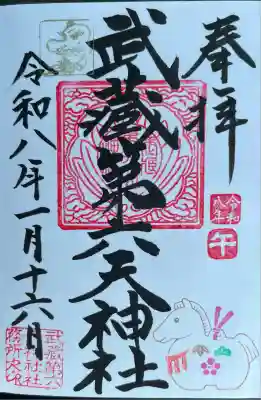 奉拝
武蔵第六天神社
令和八年一月十六日
令和
八年
午
武蔵第六
天神社社
務所之印